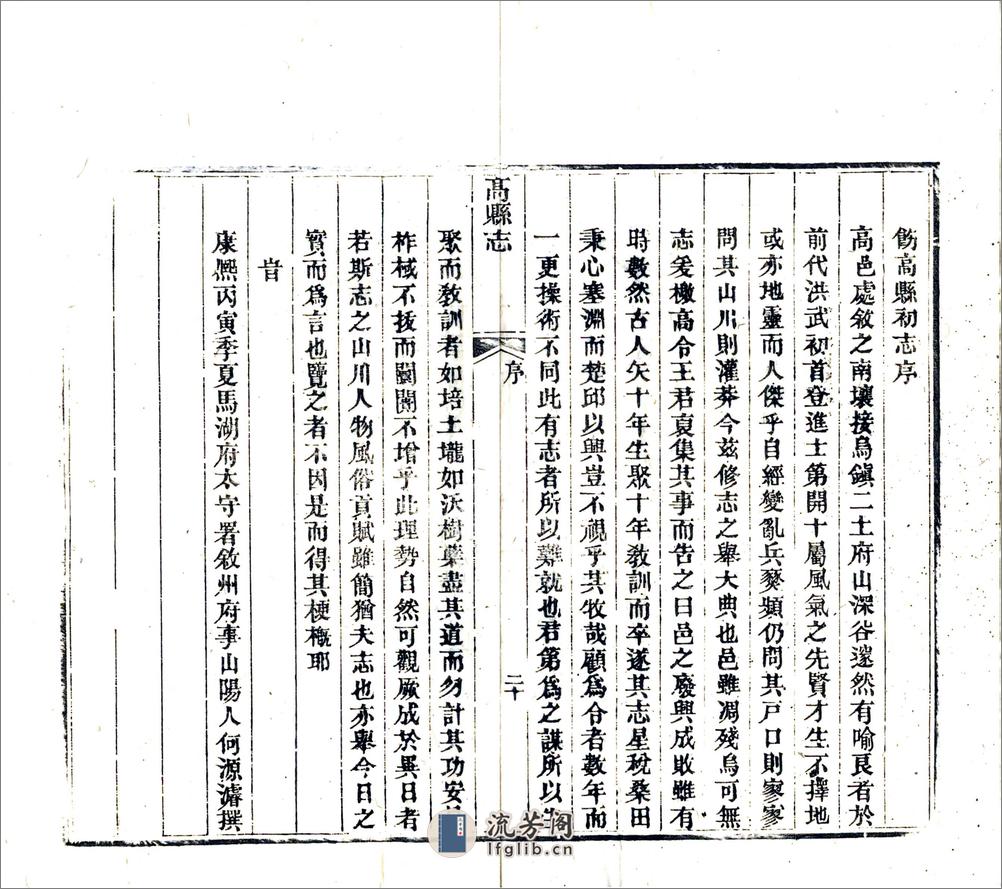 飭高縣初志序
高邑處敘之南壤接烏鎮二土府山深谷邃然有喻艮者於
前代洪武初首登進士第開十屬風氣之先賢才生不擇地
或亦地靈而人傑乎自經變亂兵燹頻仍問其戸口則寥寥
問其山川則灌莽今茲修志之舉大典也邑雖凋殘烏可無
志爰檄高令王君裒集其事而告之曰邑之廢興成敗雖有
時數然古人矢十年生聚十年教訓而卒遂其志星稅桑田
秉心塞淵而楚邱以興豈不視乎其牧哉顧爲令者數年而
一更操術不同此有志者所以難就也君第爲之謀所以生
高縣志
序
二十
聚而教訓者如培土壠如沃樹藥盡其道而勿計其功安
柞棫不拔而閫閾不增乎此理勢自然可觀厥成於異日者
若斯志之山川人物風俗貢賦雖簡猶夫志也亦舉今日之
實而爲言也覽之者不因是而得其梗概耶
旹
康熈丙寅季夏馬湖府太守署敘州府事山陽人何源濬撰
流芳阁
lfglib.cn